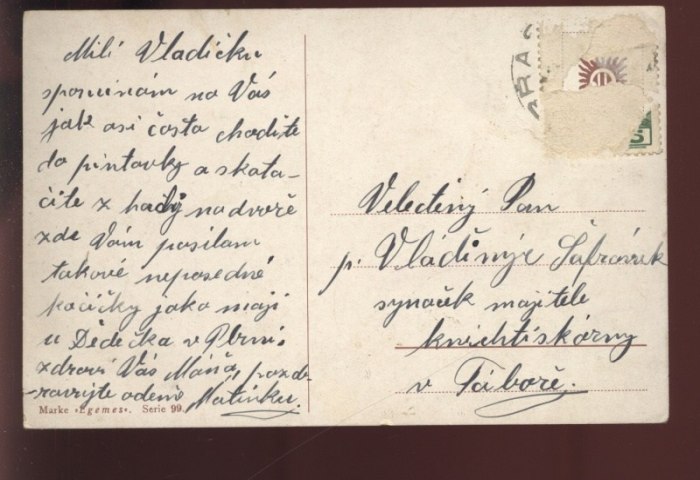 Milí Vladíčku
spomínám na Vás
jak asi často chodíte
do pintovky a skotа-
číte z hady na dvoře
zde Vám posílam
takové neposedné
kočičky jako mají
u Dědečka v Plzni
zdraví Vás Máňa, pozd-
ravujte odemě Matinku.
Marke «Egemes». Serie 99.
PRAG
Velectěný Pan
p. Vládimír Šafránek
synáček majitele
knichtiskárny
v Táboře.